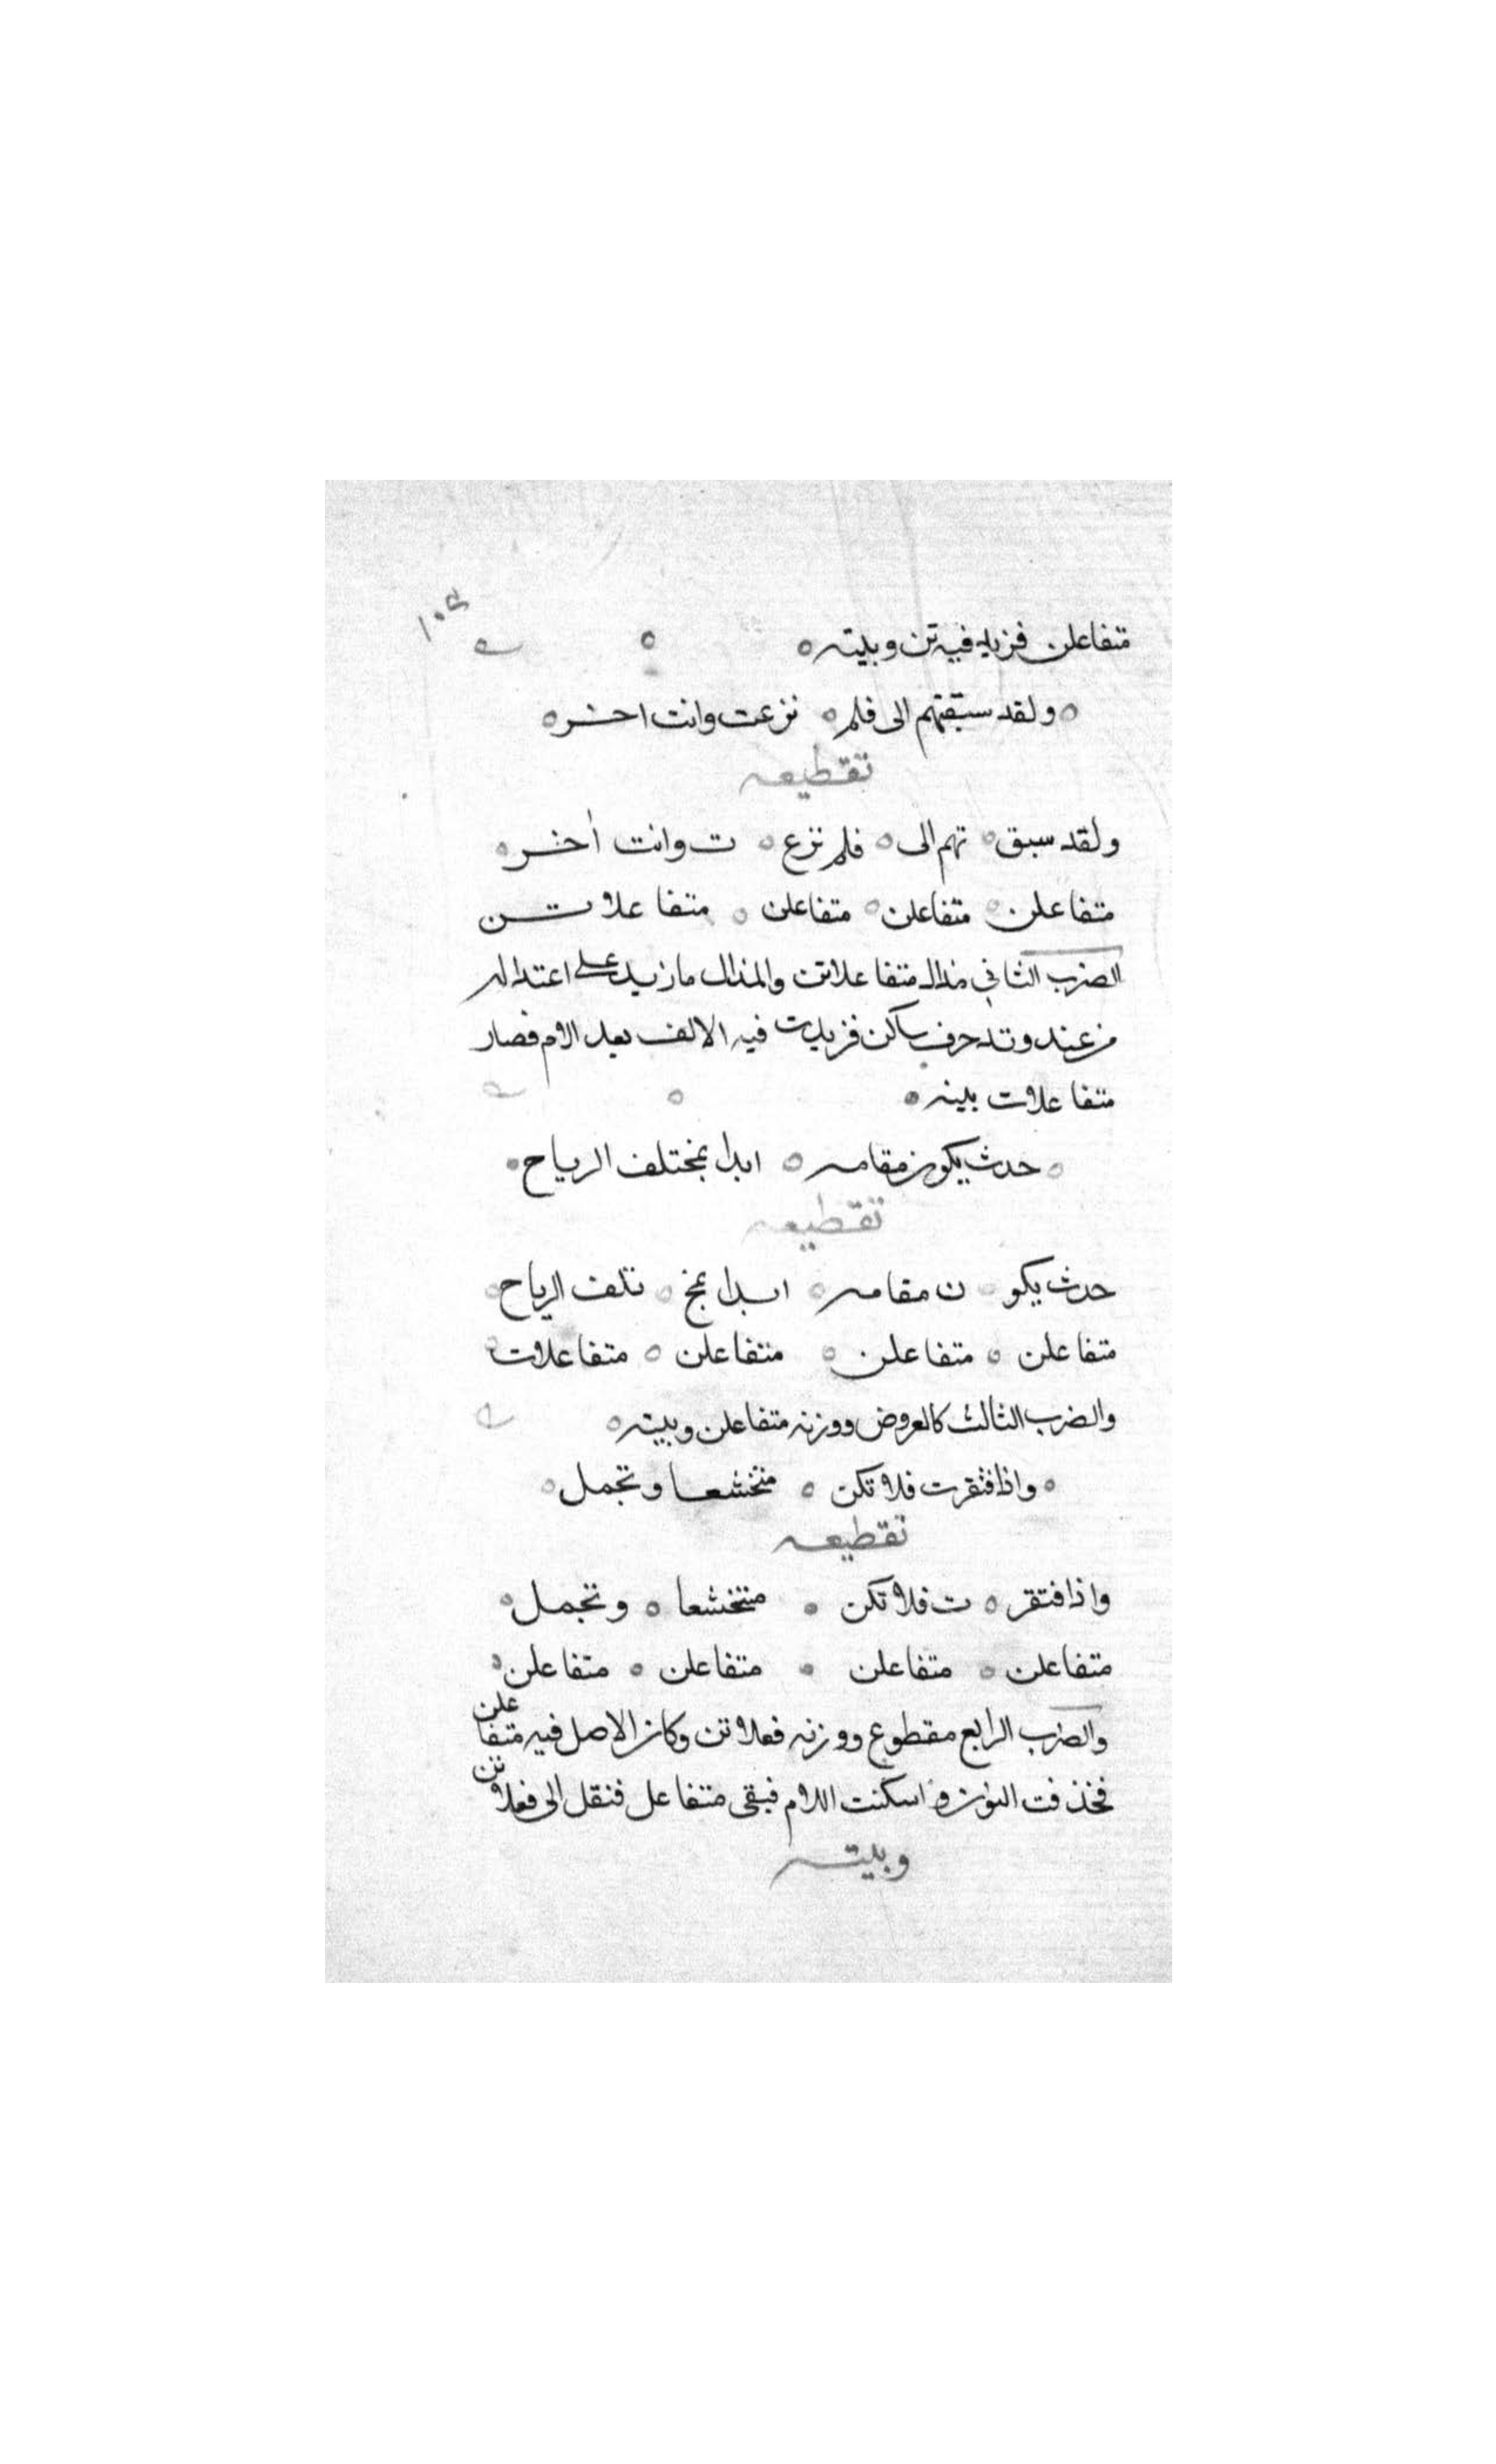 ١٠٤
متفاعلن فزيد فيه تن وبيته
ولقد سبقتهم الى فلم ه نزعت وانت اخر
تقطيعه
ولقد سبق ه تهم الى ه فلم نزع ه ت وانت أخر
متفاعلن ه متفاعلن ه متفاعلن ه متفاعلاتن
الضرب الثاني مذال متفاعلاتن والمذال ما زيد على اعتداله
من عند وتد حرف ساكن فزيدت فيه الالف بعد الام فصار
متفاعلات بيته
حدث يكون مقامه ه ابدا بمختلف الرياح
تقطيعه
حدث يكو ه ن مقامه ه ابدا بمخ ه تلف الرياح
متفاعلن ه متفاعلن ه متفاعلن ه متفاعلات
والضرب الثالث كالعروض ووزنه متفاعلن وبيته
واذا فتقرت فلا تكن ه متخشعا وتجمل
تقطيعه
واذا فتقر ه ت فلا تكن ه متخشعا ه وتجمل
متفاعلن ه متفاعلن ه متفاعلن ه متفاعلن
والضرب الرابع مقطوع ووزنه فعلاتن وكان الاصل فيه متفاعلن
فحذفت النون واسكنت اللام فبقى متفاعل فنقل الى فعلاتن
وبيته